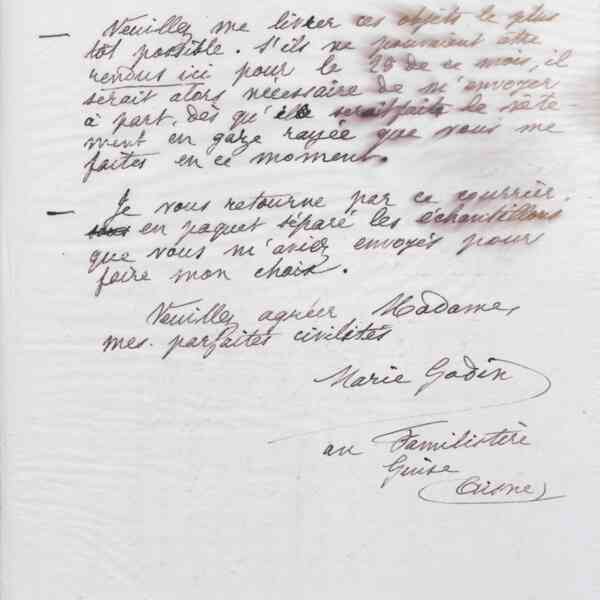 — Veuillez me livrer ces objets le plus
tôt possible. S'ils ne pouvaient être
rendus ici pour le 20 de ce mois, il
serait alors nécessaire de m'envoyer
à part, dès qu'il serait fait, le vête
ment en gaze rayée que vous me
faites en ce moment.
— Je vous retourne par ce courrier,
en paquet séparé les échantillons
que vous m'aviez envoyés pour
faire mon choix.
Veuillez agréer Madame,
mes parfaites civilités
Marie Godin
au Familistère
Guise
(Aisne)